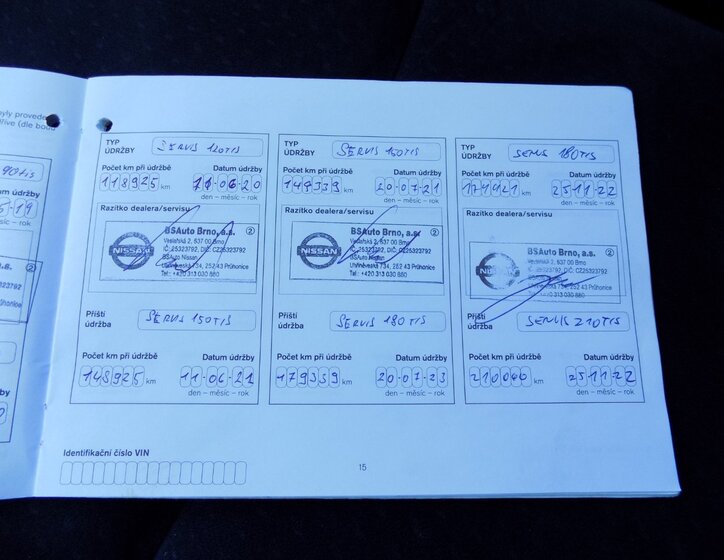 byly provede
dříve (dle
90tis
údržby
5-19
měsíc – rok
②
údržby
měsíc – rok
TYP
ÚDRŽBY
SERVIS 120TIS
Počet km při údržbě Datum údržby
118925 km 11-06-20
den – měsíc – rok
Razítko dealera/servisu
NISSAN
BSAuto Brno, a.s. ②
Veslařská 2, 637 00 Brno
IČ: 25323792, DIČ: CZ25323792
BSAuto Nissan
Uhříněveská 734, 252 43 Průhonice
Tel.: +420 313 030 880
Příští
údržba
SERVIS 150TIS
Počet km při údržbě Datum údržby
148925 km 11-06-21
den – měsíc – rok
TYP
ÚDRŽBY
SERVIS 150TIS
Počet km při údržbě Datum údržby
149339 km 20-07-21
den – měsíc – rok
Razítko dealera/servisu
NISSAN
BSAuto Brno, a.s. ②
Veslařská 2, 637 00 Brno
IČ: 25323792, DIČ: CZ25323792
BSAuto Nissan
Uhříněveská 734, 252 43 Průhonice
Tel.: +420 313 030 880
Příští
údržba
SERVIS 180TIS
Počet km při údržbě Datum údržby
179339 km 20-07-23
den – měsíc – rok
TYP
ÚDRŽBY
SERVIS 180TIS
Počet km při údržbě Datum údržby
km 251122
den – měsíc – rok
Razítko dealera/servisu
BSAuto Brno, a.s. ②
Veslařská 2, 637 00 Brno
IČ: 25323792, DIČ: CZ25323792
BSAuto Nissan
734, 252 43 Průhonice
+420 313 030 880
Příští
údržba
SERVIS 210TIS
Počet km při údržbě Datum údržby
km 251122
den – měsíc – rok
Identifikační číslo VIN
15